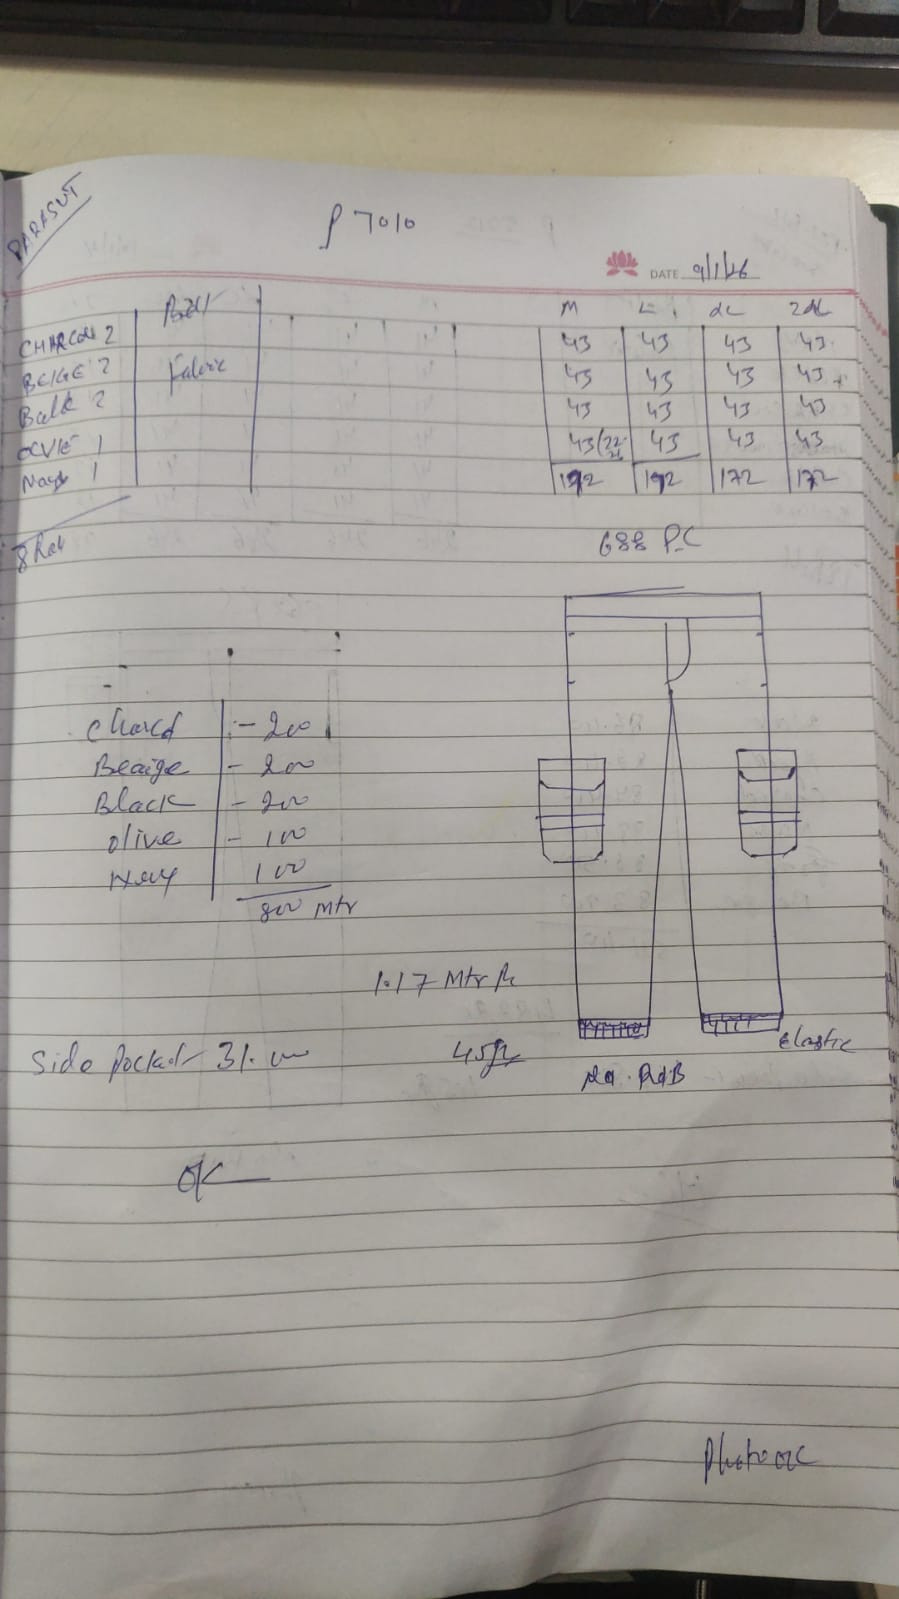 PARASUT
P 7010
DATE 9/1/26
M L XL 2XL
CHARCOL 2 43 43 43 43
BEIGE 2 Fabric 43 43 43 43
Balk 2 43 43 43 43
OLVIE 1 43 43 43 43
Navy 1 172 172 172 172
8 Rol
688 PC
Charcl :- 200
Beaige - 200
Black - 200
olive - 100
Navy 100
800 Mtr
1.17 Mtr
Elastic
Side Pocket 31. cm
OK
Photo OK